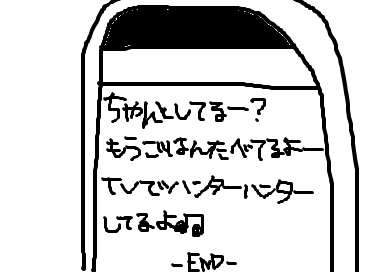 ちゃんとしてるー?
もうごはんたべてるよー
TVでハンターハンター
してるよ♫
-END-